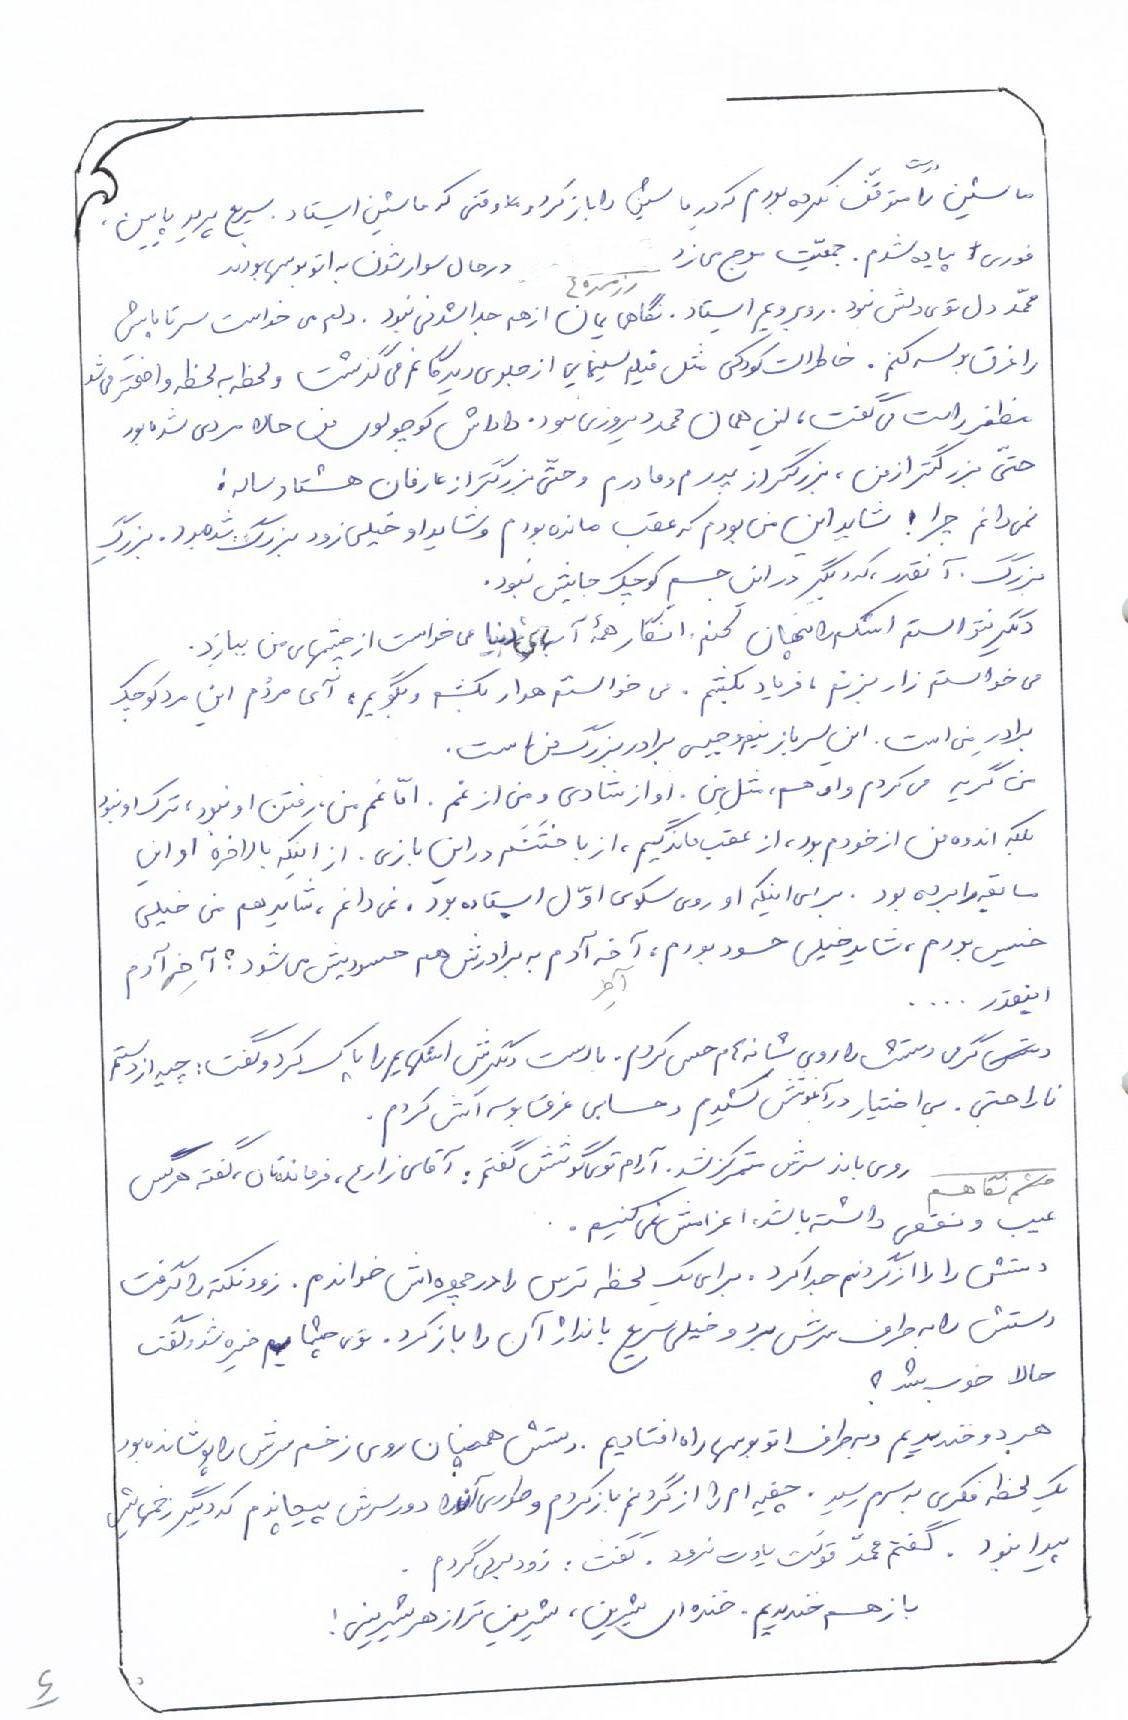 درست
ماشین را متوقف نکرده بودم که در ماشین را باز کرد و وقتی که ماشین ایستاد. سریع پرید پایین.
فوری پیاده شدم. جمعیت موج می زد
رزمنده ها در حال سوار شدن به اتوبوسها بودند
محمّد دل توی دلش نبود. روبرویم ایستاد. نگاهمان از هم جدا شدنی نبود. دلم می خواست سر تا پایش
را غرق بوسه کنم. خاطرات کودکی مثل فیلم سینمایی از جلوی دیدگانم می گذشت و لحظه به لحظه واضحتر می شد
مظفر راست می گفت، این همان محمد دیروزی نبود. داداش کوچولوی من حالا مردی شده بود
حتّی بزرگتر از من، بزرگتر از پدرم و مادرم و حتّی بزرگتر از عارفان هشتاد ساله!
نمی دانم چرا! شاید این من بودم که عقب مانده بودم و شاید او خیلی زود بزرگ شده بود. بزرگِ
بزرگ. آنقدر، که دیگر در این جسم کوچک جایش نبود.
دیگر نتوانستم اشکم را پنهان کنم. انگار همۀ آبهای دنیا می خواست از چشمهای من ببارد.
می خواستم زار بزنم، فریاد بکشم. می خواستم هوار بکشم و بگویم، آی مردُم این مرد کوچک
برادرِ من است. این سرباز بسیجی برادر بزرگ من است.
من گریه می کردم و او هم، مثل من. او از شادی و من از غم. امّا غم من، رفتن او نبود، ترک او نبود
بلکه اندوه من از خودم بود، از عقب ماندگیم، از باختَنَم در این بازی. از اینکه بالاخره او این
مسابقه را برده بود. برای اینکه او روی سکوی اوّل ایستاده بود. نمی دانم، شاید هم من خیلی
خسیس بودم، شاید خیلی حسود بودم، آخه آدم به برادرش هم حسودیش می شود؟ آخه آدم
آخر
اینقدر ....
گرمی دستش را روی شانه ام حس کردم. با دست دیگرش اشکهایم را پاک کرد و گفت: چیه از دستم
ناراحتی. بی اختیار در آغوشش کشیدم و حسابی غرق بوسه اش کردم.
چشم نگاهم روی باند سرش متمرکز شد. آرام توی گوشش گفتم: آقای زارع، فرمانده تان، گفته هرکس
عیب و نقصی داشته باشد، اعزامش نمی کنیم.
دستش را از گردنم جدا کرد. برای یک لحظه ترس را در چهره اش خواندم. زود نکته را گرفت
دستش را به طرف سرش برد و خیلی سریع بانداژ آن را باز کرد. توی چشمانم خیره شد و گفت
حالا خوب شد؟
هر دو خندیدیم و به طرف اتوبوسها راه افتادیم. دستش همچنان روی زخم سرش را پوشانده بود
یک لحظه فکری به سرم رسید. چفیه ام را از گردنم باز کردم و طوری آنرا دور سرش پیچاندم که دیگر زخمهایش
پیدا نبود. گفتم محمّد قولت یادت نرود. گفت: زود برمی گردم.
باز هم خندیدیم. خنده ای شیرین، شیرین تر از هر شیرینی!
٤